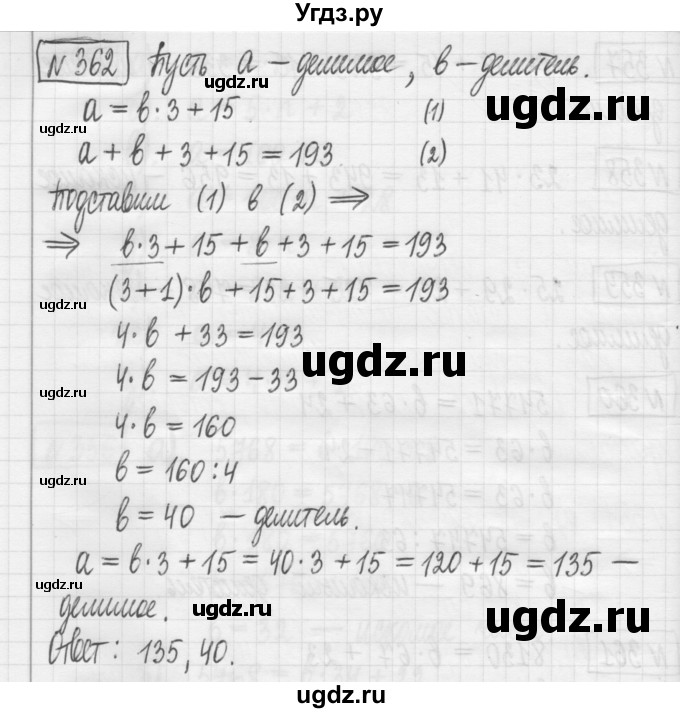 Угдз.ру
№ 362 Пусть а – делимое, в – делитель.
а = в·3 + 15 (1)
а + в + 3 + 15 = 193 (2)
Подставим (1) в (2) ⇒
⇒ в·3 + 15 + в + 3 + 15 = 193
(3+1)·в + 15 + 3 + 15 = 193
4·в + 33 = 193
4·в = 193 – 33
4·в = 160
в = 160 : 4
в = 40 – делитель.
а = в·3 + 15 = 40·3 + 15 = 120 + 15 = 135 –
делимое.
Ответ: 135, 40.
ugdz.ru
ugdz.ru
ugdz.ru
ugdz.ru
ugdz.ru
ugdz.ru
ugdz.ru
ugdz.ru
ugdz.ru
ugdz.ru
ugdz.ru